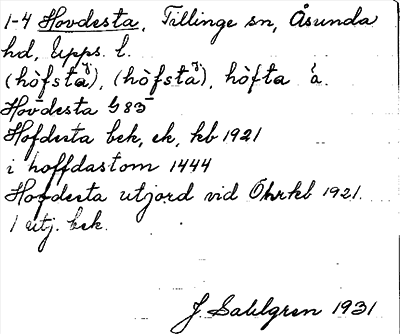 1-4 Hovdesta, Tillinge sn, Åsunda
hd, Upps. l.
(hòfstạ̈), (hòfstạ̈), hòfta a.
Hovdesta G 85
Hofdesta bek, ek, kb 1921
i hoffdastom 1444
Hofdesta utjord vid Öhrkb 1921.
1 utj. bek.
J. Sahlgren 1931